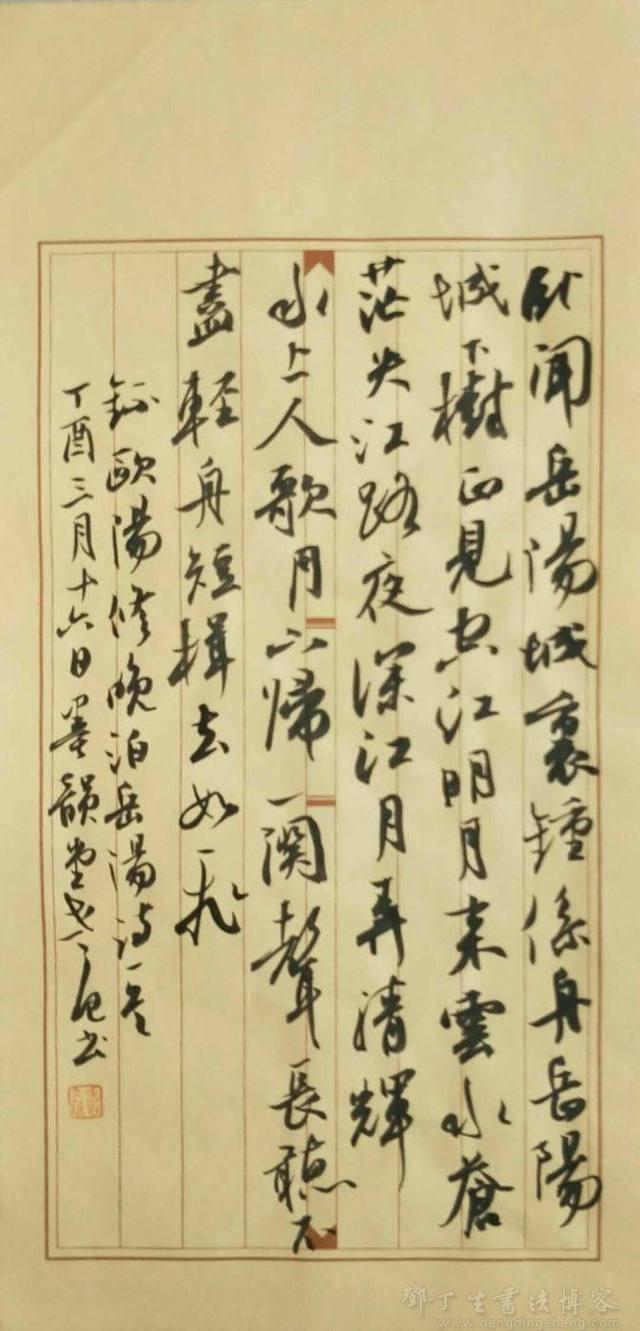 臥聞岳陽城裏鍾係舟岳陽
城下樹正見空江明月来雲水蒼
茫失江路夜深江月弄清輝
水上人歌月下歸一闋聲長聽不
盡輕舟短楫去如飛
録歐陽修晚泊岳陽詩一首
丁酉三月十六日墨韻堂书
鄧丁生書法博客
www.dengdingsheng.com